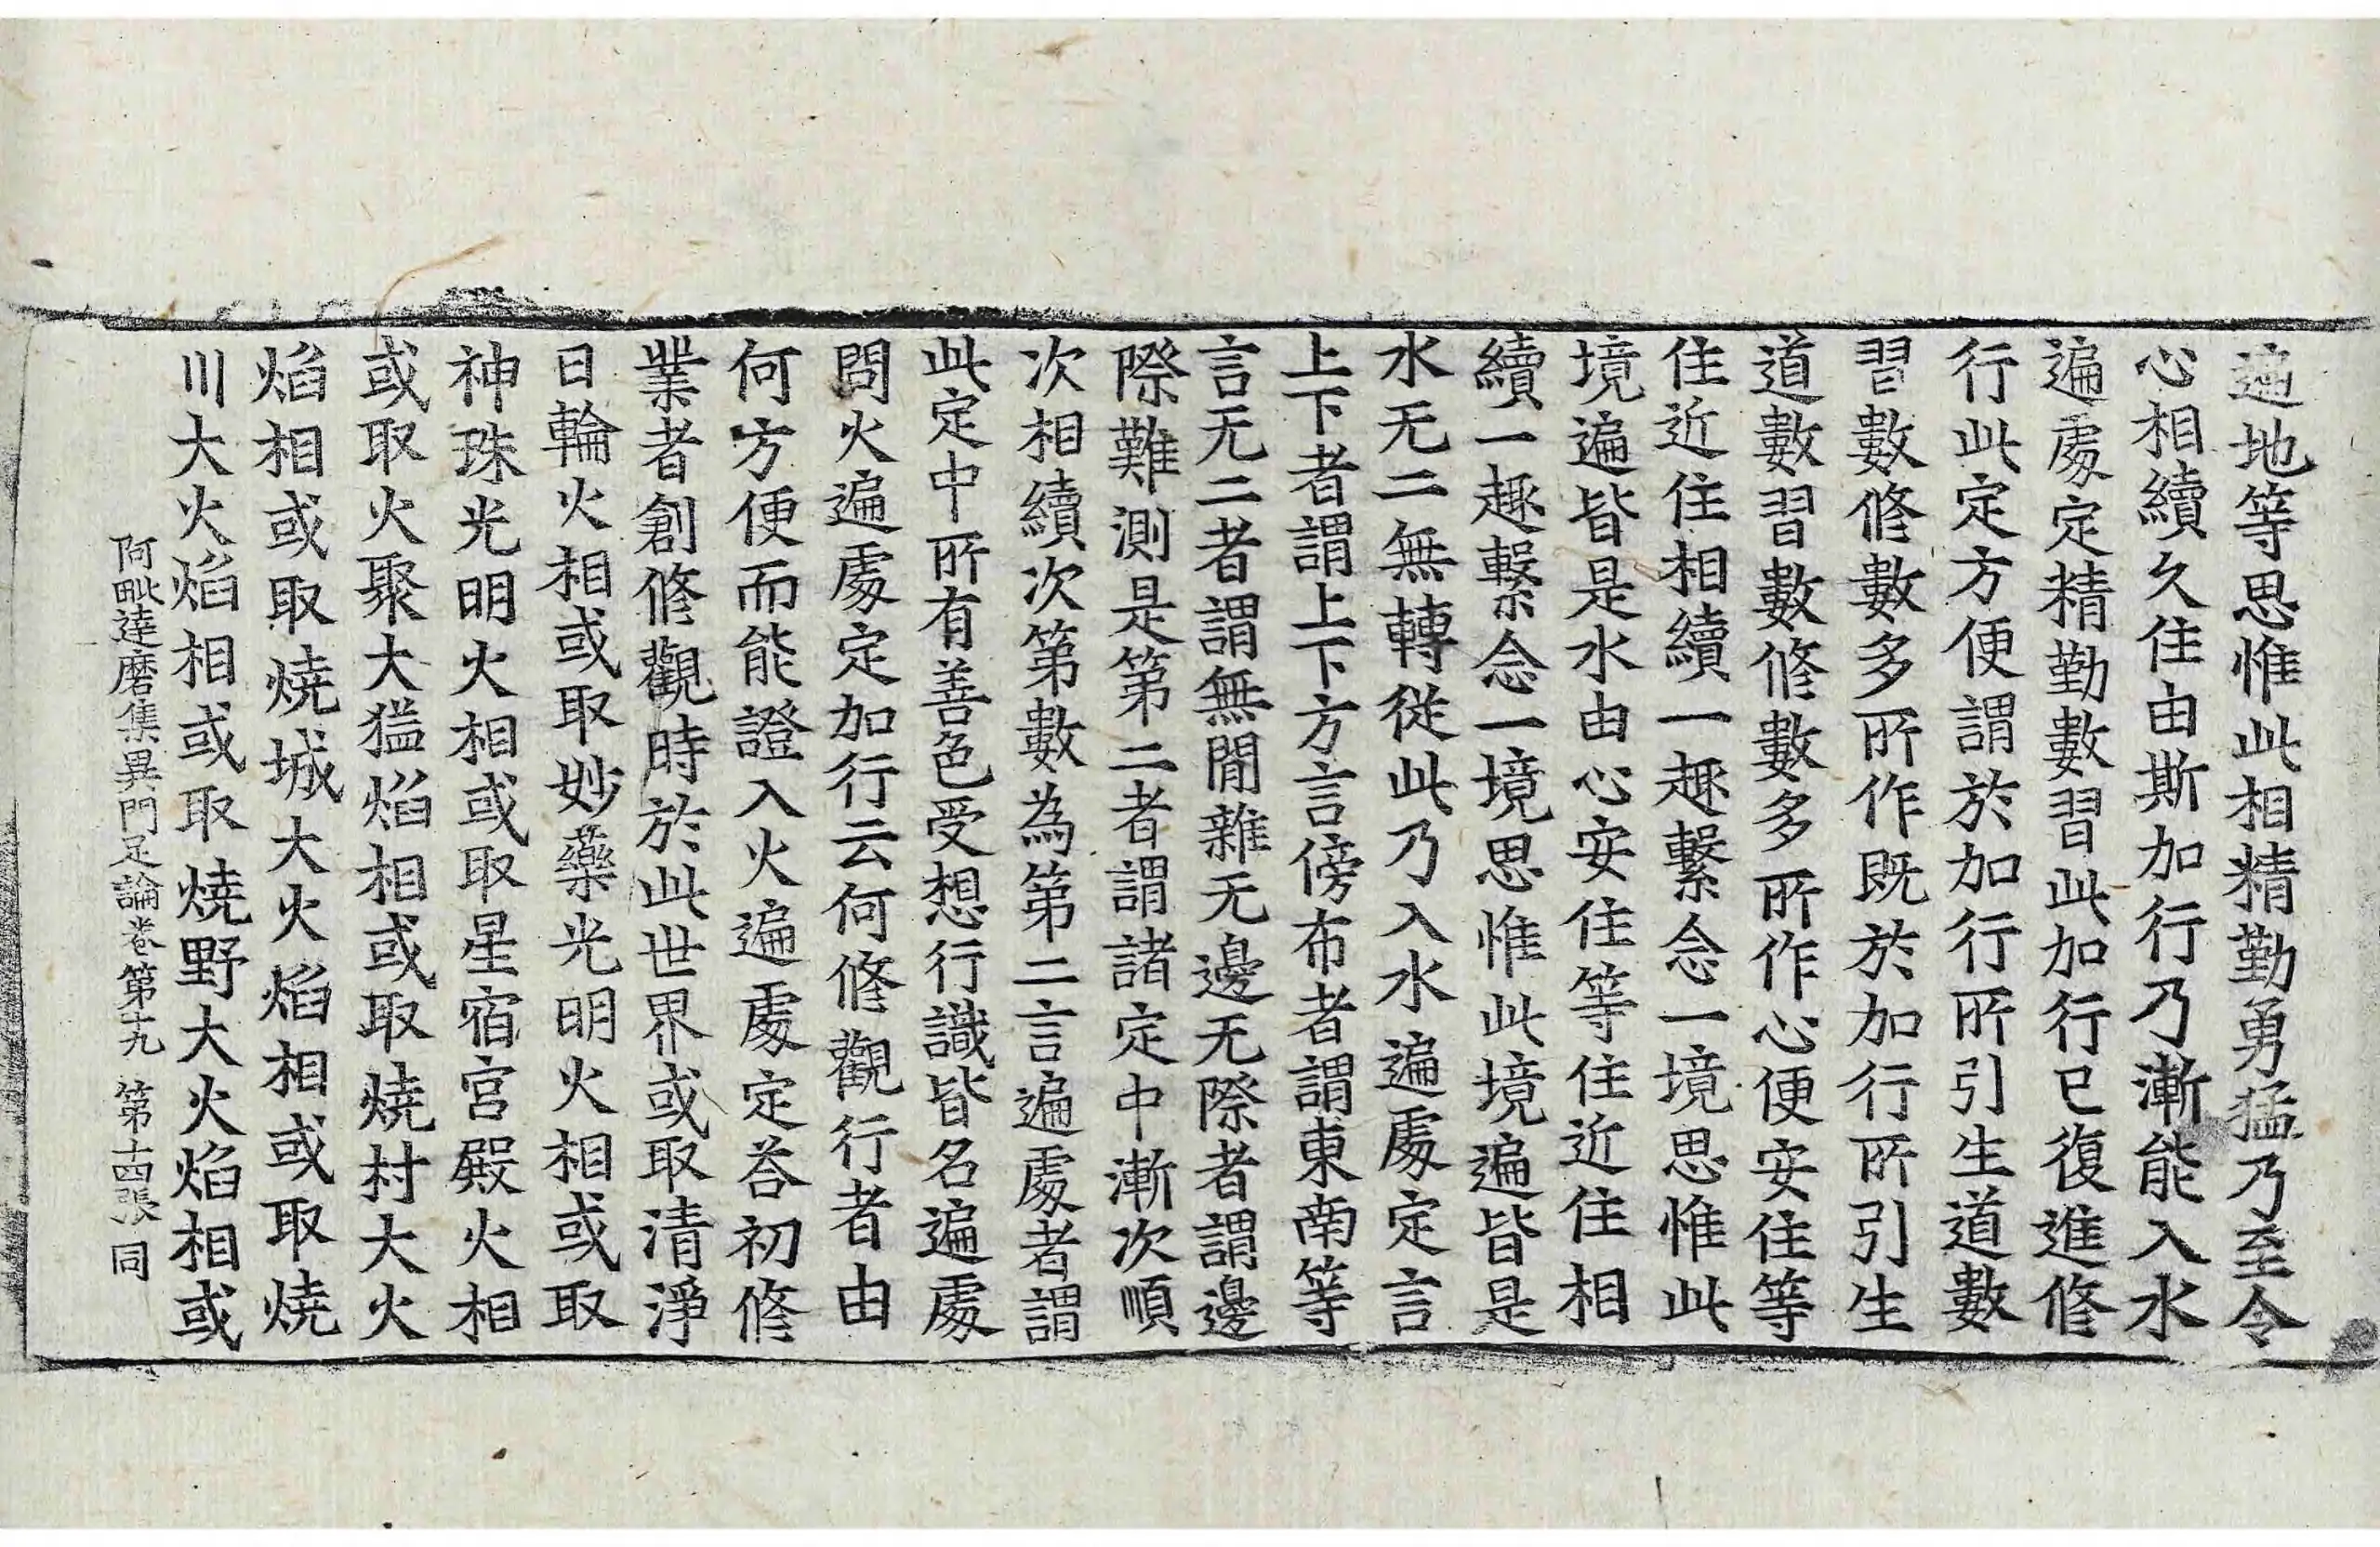 遍地等思惟此相精勤勇猛乃至令
心相續久住由斯加行乃漸能入水
遍處定精勤數習此加行已復進修
行此定方便謂於加行所引生道數
習數修數多所作既於加行所引生
道數習數修數多所作心便安住等
住近住相續一趣繫念一境思惟此
境遍皆是水由心安住等住近住相
續一趣繫念一境思惟此境遍皆是
水无二無轉從此乃入水遍處定言
上下者謂上下方言傍布者謂東南等
言无二者謂無閒雜无邊无際者謂邊
際難測是第二者謂諸定中漸次順
次相續次第數為第二言遍處者謂
此定中所有善色受想行識皆名遍處
問火遍處定加行云何修觀行者由
何方便而能證入火遍處定荅初修
業者創修觀時於此世界或取清淨
日輪火相或取妙藥光明火相或取
神珠光明火相或取星宿宮殿火相
或取火聚大猛焰相或取燒村大火
焰相或取燒城大火焰相或取燒
川大火焰相或取燒野大火焰相或
阿毗達磨集異門足論卷第十九 第十四張 同